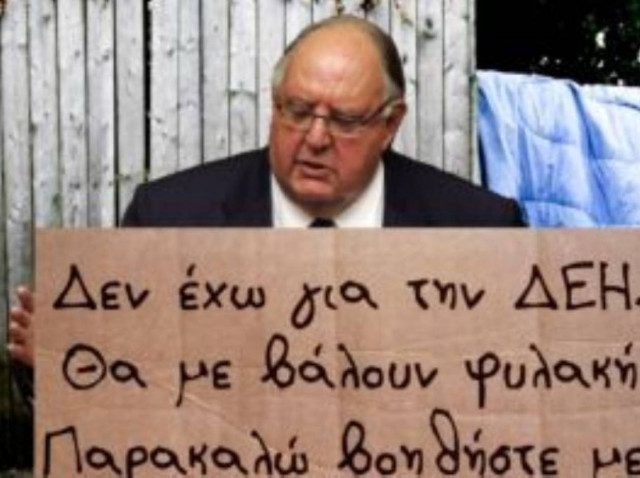 Δεν έχω για την ΔΕΗ.
Θα με βάλουν φυλακή
Παρακαλώ βοηθήστε με